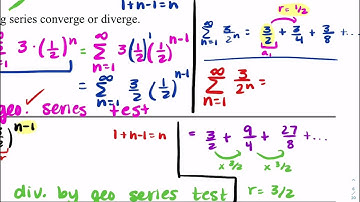 g series converge or diverge.
1+n-1=n
3·(1/2)^n = ∞∑n=1 3(1/2)^1(1/2)^n-1
= ∞∑n=1 3/2 (1/2)^n-1
geo. series test
∞∑n=1 3/2^n = 3/2 + 3/4 + 3/8 +...
r = 1/2
a1
∞∑n=1 3/2^n =
n-1
1+n-1=n
= 3/2 + 9/4 + 27/8 +...
x 3/2 x 3/2
div. by geo series test r = 3/2